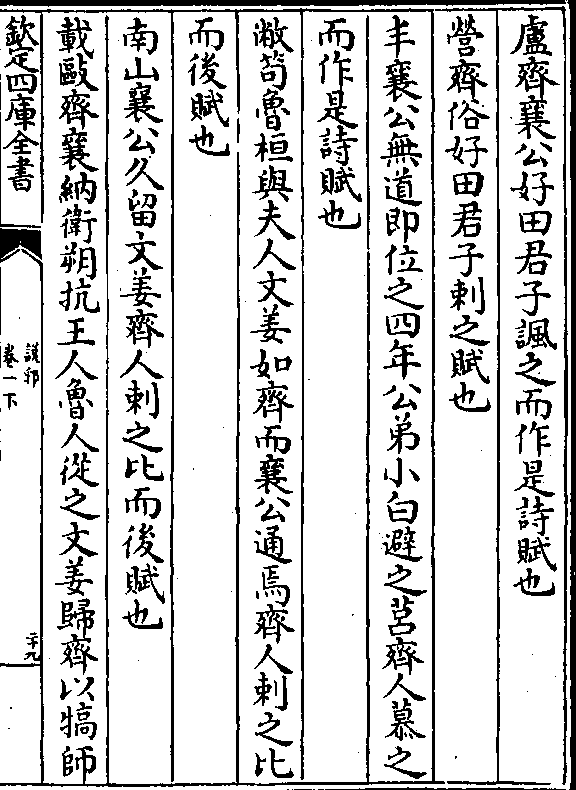 盧齊襄公好田君子諷之而作是詩賦也
營齊俗好田君子刺之賦也
丰襄公無道即位之四年公弟小白避之莒齊人慕之
而作是詩賦也
敝笱魯桓與夫人文姜如齊而襄公通焉齊人刺之比
而後賦也
南山襄公久留文姜齊人刺之比而後賦也
載敺齊襄納衛朔抗王人魯人從之文姜歸齊以犒師
欽定四庫全書
說郛
卷一下
二十九